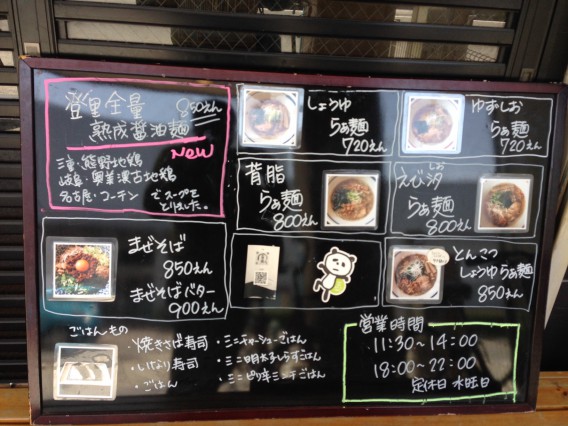 登里全量 850えん
熟成醤油麺
New
三重・熊野地鶏
岐阜・奥美濃古地鶏
名古屋・コーチン でスープを
とりました。
しょうゆ
らぁ麺
720えん
ゆずしお
らぁ麺
720えん
背脂
らぁ麺
800えん
えび汐
しお
らぁ麺
800えん
まぜそば
850えん
まぜそばバター
900えん
とんこつ
しょうゆらぁ麺
850えん
ごはんもの
・焼きさば寿司
・いなり寿司
・ごはん
・ミニチャーシューごはん
・ミニ明太子しらすごはん
・ミニピリ辛ミンチごはん
営業時間
11:30~14:00
18:00~22:00
定休日 水曜日